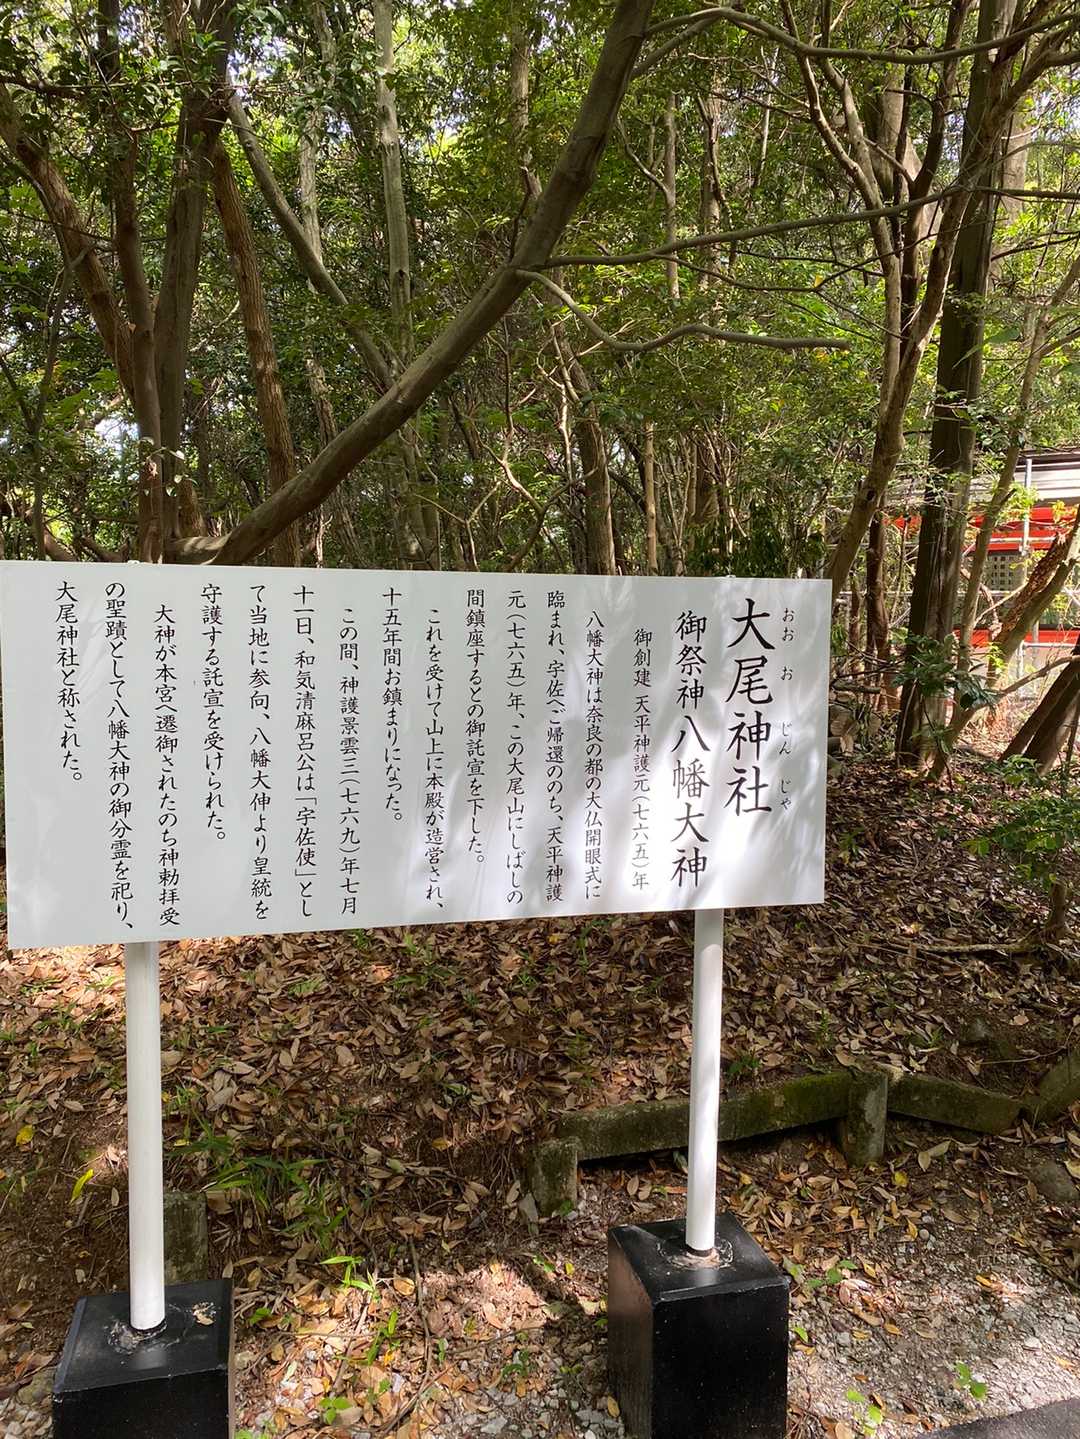 おお お じん じゃ
大尾神社
御祭神八幡大神
御創建 天平神護元(七六五)年
八幡大神は奈良の都の大仏開眼式に
臨まれ、宇佐へご帰還ののち、天平神護
元(七六五)年、この大尾山にしばしの
間鎮座するとの御託宣を下した。
これを受けて山上に本殿が造営され、
十五年間お鎮まりになった。
この間、神護景雲三(七六九)年七月
十一日、和気清麻呂公は「宇佐使」とし
て当地に参向、八幡大伸より皇統を
守護する託宣を受けられた。
大神が本宮へ遷御されたのち神勅拝受
の聖蹟として八幡大神の御分霊を祀り、
大尾神社と称された。